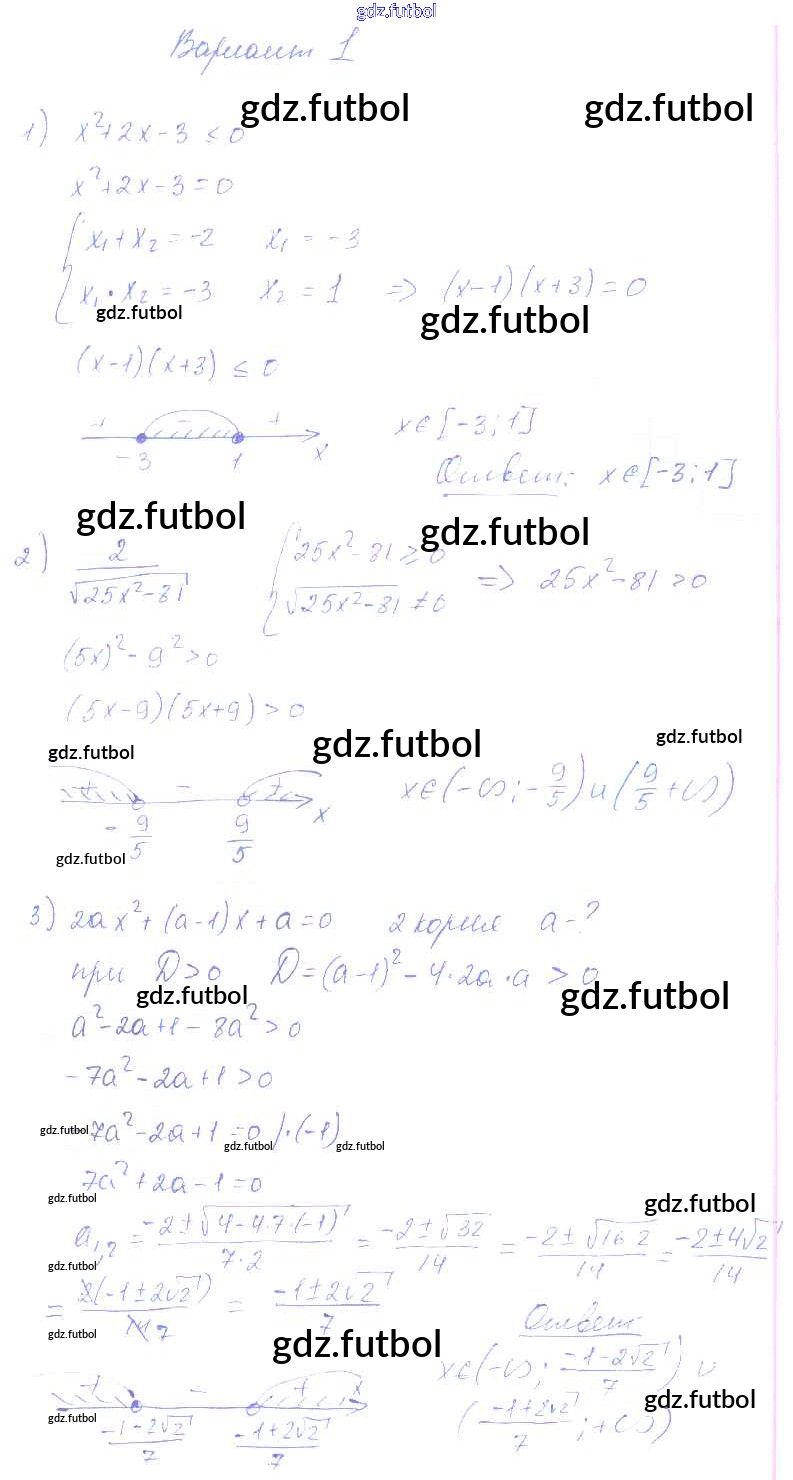 gdz.futbol
Вариант 1
gdz.futbol gdz.futbol
1) x²+2x-3 ≤ 0
x²+2x-3=0
x₁+x₂=-2 x₁=-3
x₁•x₂=-3 x₂=1 => (x-1)(x+3)=0
gdz.futbol gdz.futbol
(x-1)(x+3) ≤ 0
+ - + x∈[-3;1]
-3 1 x
Ответ: x∈[-3;1]
gdz.futbol gdz.futbol
2) 2/√(25x²-81) { 25x²-81 ≥ 0
√(25x²-81) ≠ 0 => 25x²-81>0
(5x)²-9²>0
(5x-9)(5x+9)>0
gdz.futbol gdz.futbol gdz.futbol
+ - + x∈(-∞;-9/5)и(9/5+∞)
-9/5 9/5 x
gdz.futbol
3) 2ax²+(a-1)x+a=0 2 корня a-?
при D>0 D=(a-1)²-4·2a·a>0
gdz.futbol gdz.futbol
a²-2a+1-8a²>0
-7a²-2a+1>0
gdz.futbol 7a²-2a+1=0 |·(-1)
gdz.futbol gdz.futbol
7a²+2a-1=0
gdz.futbol gdz.futbol
a₁,₂ = (-2±√(4-4.7.(-1)))/(7·2) = (-2±√32)/14 = (-2±√(16 2))/14 = (-2±4√2)/14
gdz.futbol
= 2(-1±2√2)/14 7 = (-1±2√2)/7
Ответ:
gdz.futbol gdz.futbol
x∈(-∞; (-1-2√2)/7) ∪
+ - + x
gdz.futbol gdz.futbol
(-1-2√2)/7 (-1+2√2)/7 ((-1+2√2)/7;+∞)